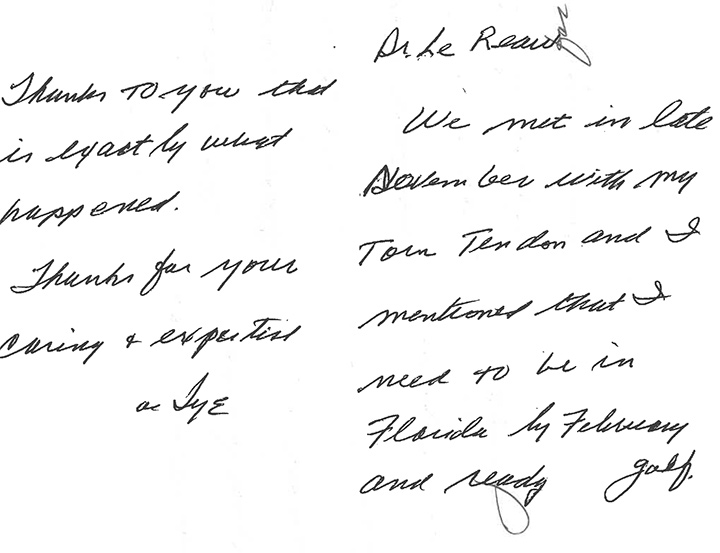 Dr. Le
We met in late
November with my
Torn Tendon and I
mentioned that I
need to be in
Florida by February
and ready golf.
Thanks to you that
is exactly what
happened.
Thanks for your
caring & expertise